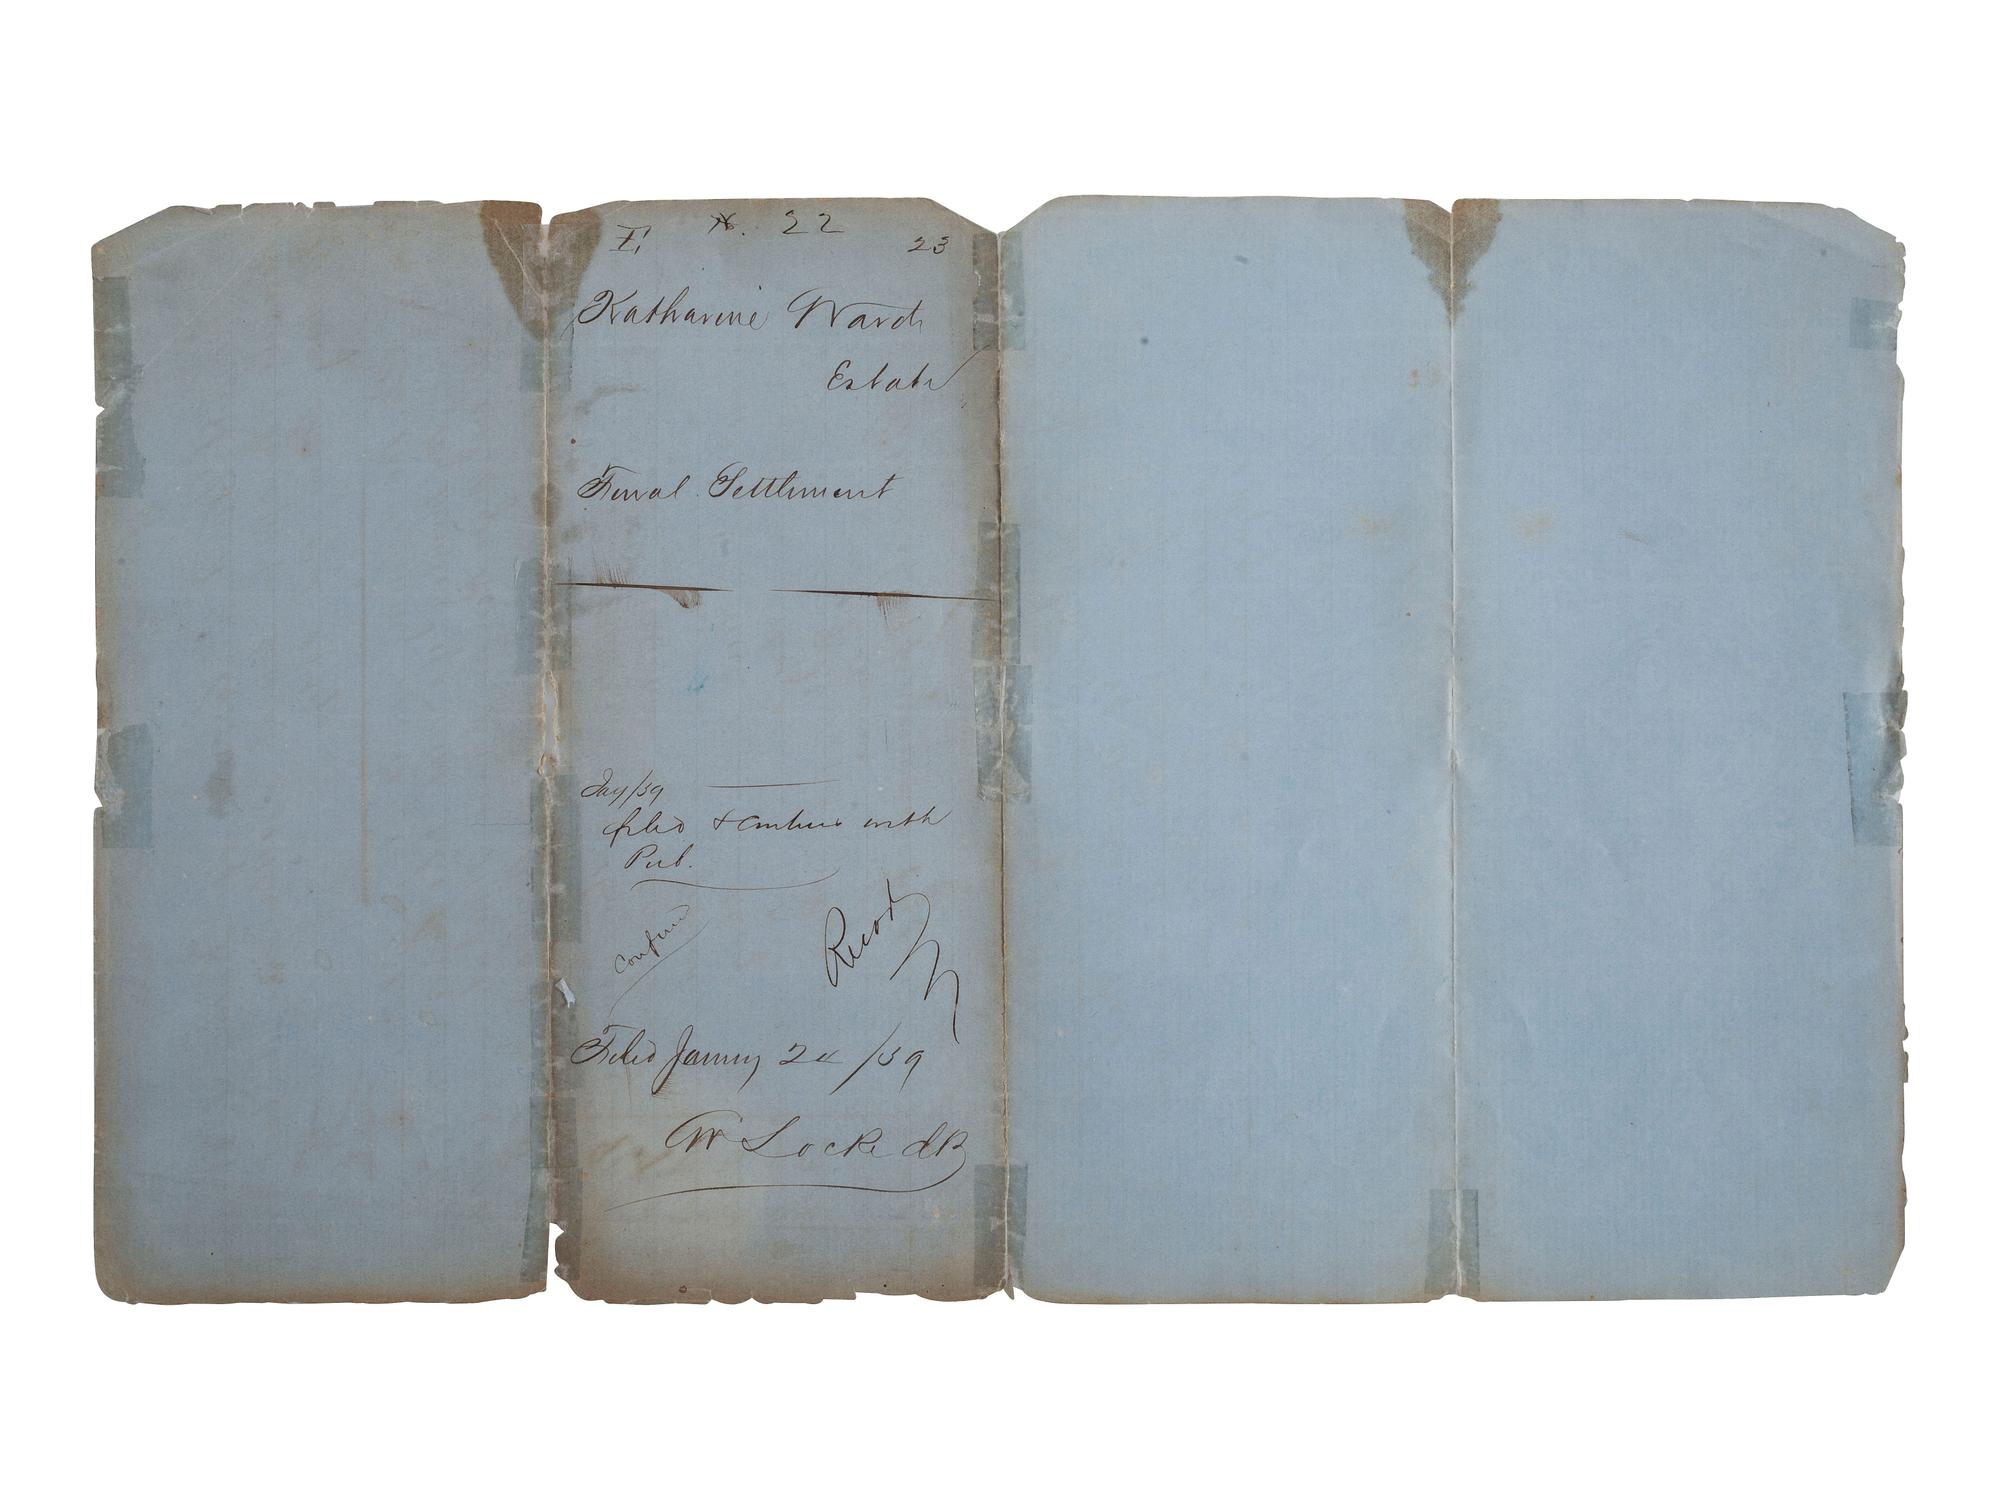 F. N. 22
23
Katharine Ward
Estate
Final Settlement
Jay/59
filed & Continu with
Pub.
Confirm
Record
Filed January 24 /59
W Locke